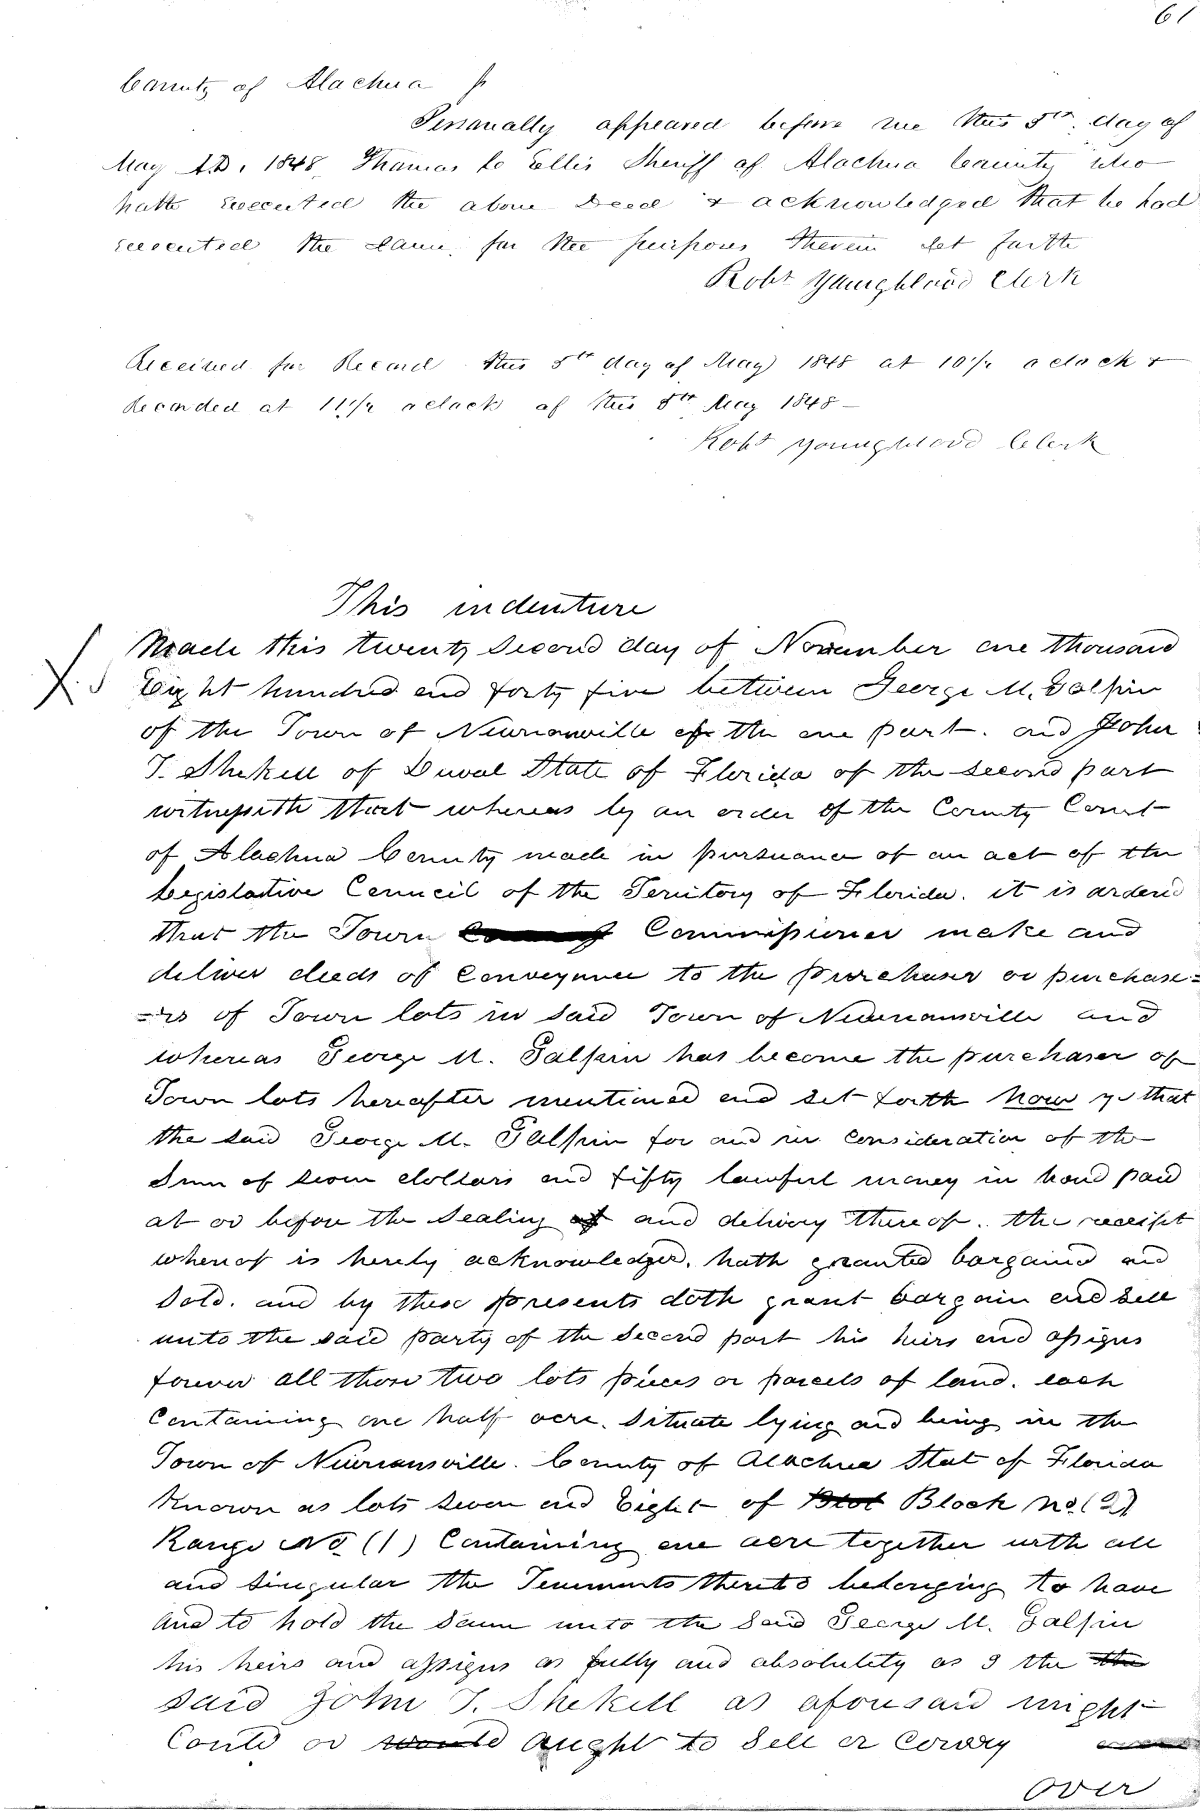 61
County of Alachua
Personally appeared before me this 5th day of
May A.D. 1848 Thomas C Ellis Sheriff of Alachua County who
hath executed the above Deed & acknowledged that he had
executed the same for the purposes therein set forth
Robt Youngblood Clerk
Received for Record this 5th day of May 1848 at 10 1/2 oclock &
Recorded at 11 1/2 oclock of this 5th May 1848 —
Robt Youngblood Clerk
This indenture
Made this twenty second day of November one thousand
Eight hundred and forty five between George M. Galpin
of the Town of Newnanville of the one part. and John
T. Shekell of Duval State of Florida of the second part
witnesseth that whereas by an order of the County Court
of Alachua County made in pursuance of an act of the
Legislative Council of the Territory of Florida. it is ordered
that the Town Commissioner make and
deliver deeds of Conveyance to the purchaser or purchase=
=ers of Town lots in said Town of Newnansville and
whereas George M. Galpin has become the purchaser of
Town lots hereafter mentioned and set forth now ye that
the said George M. Galpin for and in consideration of the
Sum of seven dollars and fifty lawful money in hand paid
at or before the sealing and delivery thereof. the receipt
whereof is hereby acknowledged, hath granted bargained and
Sold. and by these presents doth grant bargain and sell
unto the said party of the second part his heirs and assigns
forever all those two lots pieces or parcels of land. each
Containing one half acre. situate lying and being in the
Town of Newnansville. County of Alachua Stat of Florida
Known as lots seven and Eight of Block No. (2)
Range No (1) Containing one acre together with all
and singular the Tenements thereto belonging to have
and to hold the same unto the said George M. Galpin
his heirs and assigns as fully and absolutely as I the the
said John T. Shekell as aforesaid might
Could or would aught to sell or Convey
over